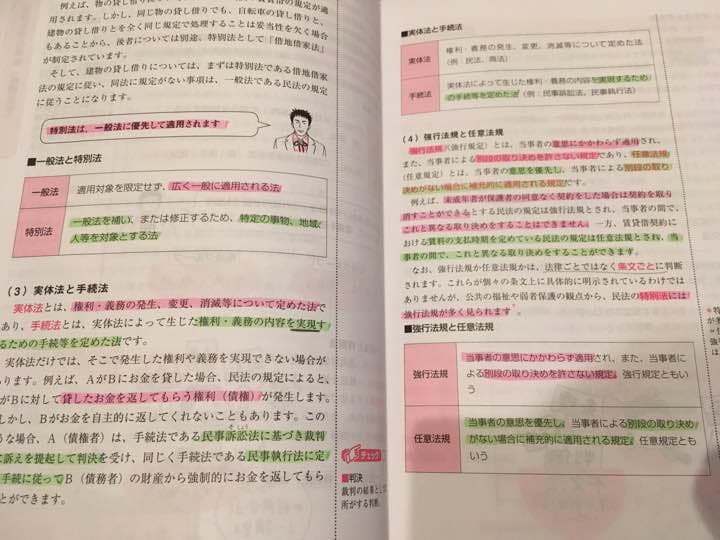 例えば、物の貸し借り
用されます。しかし、同じ物の貸し借りでも、自転車の貸し借りと、
建物の貸し借りとを全く同じ規定で処理することは妥当性を欠く場合
もあることから、後者については別途、特別法として『借地借家法』
が制定されています。
そして、建物の貸し借りについては、まずは特別法である借地借家
法の規定に従い、同法に規定がない事項は、一般法である民法の規定
に従うことになります。
特別法は、一般法に優先して適用されます
■一般法と特別法
一般法
適用対象を限定せず、広く一般に適用される法
特別法
一般法を補い、または修正するため、特定の事物、地域、
人等を対象とする法
（3）実体法と手続法
実体法とは、権利・義務の発生、変更、消滅等について定めた法で
あり、手続法とは、実体法によって生じた権利・義務の内容を実現す
るための手続等を定めた法です。
実体法だけでは、そこで発生した権利や義務を実現できない場合が
ります。例えば、AがBにお金を貸した場合、民法の規定によると、
がBに対して貸したお金を返してもらう権利（債権）が発生します。
しかし、Bがお金を自主的に返してくれないこともあります。この
うな場合、A（債権者）は、手続法である民事訴訟法に基づき裁判
に訴えを提起して判決を受け、同じく手続法である民事執行法に定
手続に従ってB（債務者）の財産から強制的にお金を返してもら
とができます。
そしょう
チェック
■判決
裁判の結果として
所がする判断。
■実体法と手続法
実体法
権利・義務の発生、変更、消滅等について定めた法
（例：民法、商法）
手続法
実体法によって生じた権利・義務の内容を実現するため
の手続等を定めた法（例：民事訴訟法、民事執行法）
（4）強行法規と任意法規
強行法規（強行規定）とは、当事者の意思にかかわらず適用され、
また、当事者による別段の取り決めを許さない規定であり、任意法規
（任意規定）とは、当事者の意思を優先し、当事者による別段の取り
決めがない場合に補充的に適用される規定です。
例えば、未成年者が保護者の同意なく契約をした場合は契約を取り
消すことができるとする民法の規定は強行法規とされ、当事者の間で、
これと異なる取り決めをすることはできません。一方、賃貸借契約に
おける賃料の支払時期を定めている民法の規定は任意法規とされ、当
事者の間で、これと異なる取り決めをすることができます。
なお、強行法規か任意法規かは、法律ごとではなく条文ごとに判断
されます。これらが個々の条文上に具体的に明示されているわけでは
ありませんが、公共の福祉や弱者保護の観点から、民法の特別法には
強行法規が多く見られます。
■強行法規と任意法規
強行法規
当事者の意思にかかわらず適用され、また、当事者に
よる別段の取り決めを許さない規定。強行規定ともいう
任意法規
当事者の意思を優先し、当事者による別段の取り決め
がない場合に補充的に適用される規定。任意規定とも
いう